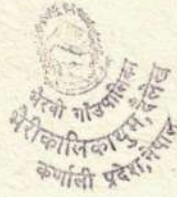 भैरवी गाँउपालिका
भैरीकालिकाथुम, दैलेख
कर्णाली प्रदेश, नेपाल